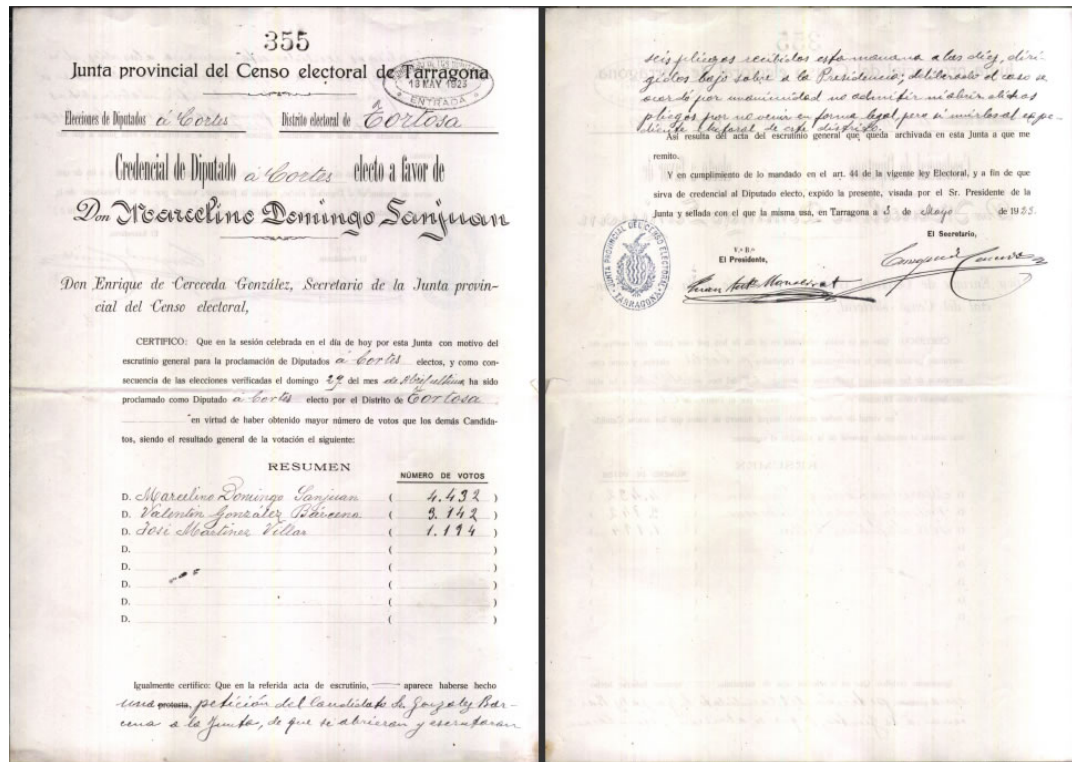 355
Junta provincial del Censo electoral de Tarragona
18 MAY 1923
ENTRADA
Elecciones de Diputados á Cortes Distrito electoral de Tortosa
Credencial de Diputado á Cortes electo a favor de
Don Marcelino Domingo Sanjuan
Don Enrique de Cereceda González, Secretario de la Junta provin-
cial del Censo electoral,
CERTIFICO: Que en la sesión celebrada en el día de hoy por esta Junta con motivo del
escrutinio general para la proclamación de Diputados á Cortes electos, y como con-
secuencia de las elecciones verificadas el domingo 29 del mes de Abril último ha sido
proclamado como Diputado á Cortes electo por el Distrito de Tortosa
en virtud de haber obtenido mayor número de votos que los demás Candida-
tos, siendo el resultado general de la votación el siguiente:
RESUMEN
NÚMERO DE VOTOS
D. Marcelino Domingo Sanjuan ( 4.432 )
D. Valentín González Bárcena ( 3.142 )
D. José Martínez Villar ( 1.194 )
D. ( )
D. ( )
D. ( )
D. ( )
D. ( )
Igualmente certifico: Que en la referida acta de escrutinio, aparece haberse hecho
una protesta, petición del Candidato Sr. González Bár-
cena a la Junta, de que se abrieran y escrutaran
seis pliegos recibidos esta mañana a las diez, diri-
gidos bajo sobre a la Presidencia; deliberado el caso se
acordó por unanimidad no admitir ni abrir dichos
pliegos por no venir en forma legal, pero si unirlos al expe-
diente electoral de este distrito.
Así resulta del acta del escrutinio general que queda archivada en esta Junta a que me
remito.
Y en cumplimiento de lo mandado en el art. 44 de la vigente ley Electoral, y a fin de que
sirva de credencial al Diputado electo, expido la presente, visada por el Sr. Presidente de la
Junta y sellado con el que la misma usa, en Tarragona a 3 de Mayo de 1923.
El Secretario,
V.º B.º
El Presidente,
JUNTA PROVINCIAL DEL CENSO ELECTORAL
TARRAGONA